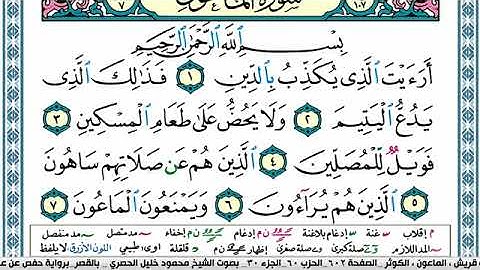 ١٠٧ سورة الماعون ٧
بِسْمِ ٱللَّهِ ٱلرَّحْمَٰنِ ٱلرَّحِيمِ
أَرَءَيْتَ ٱلَّذِى يُكَذِّبُ بِٱلدِّينِ ١ فَذَٰلِكَ ٱلَّذِى
يَدُعُّ ٱلْيَتِيمَ ٢ وَلَا يَحُضُّ عَلَىٰ طَعَامِ ٱلْمِسْكِينِ ٣
فَوَيْلٌ لِّلْمُصَلِّينَ ٤ ٱلَّذِينَ هُمْ عَن صَلَاتِهِمْ سَاهُونَ
٥ ٱلَّذِينَ هُمْ يُرَآءُونَ ٦ وَيَمْنَعُونَ ٱلْمَاعُونَ ٧
م إقلاب غنة إدغام بلاغنة ن م إدغام ن م إخفاء مد متصل مد منفصل
المد اللازم صلة كبرى وے صلة صغرى إظهار ن م قلقلة اوى طبيعي اللون الأزرق لا يلفظ
قريش ، الماعون ، الكوثر _ الصفحة ٦٠٢ _ الحزب ٦٠ _ الجزء ٣٠ _ بصوت الشيخ محمود خليل الحصري _ بالقصر_برواية حفص عن